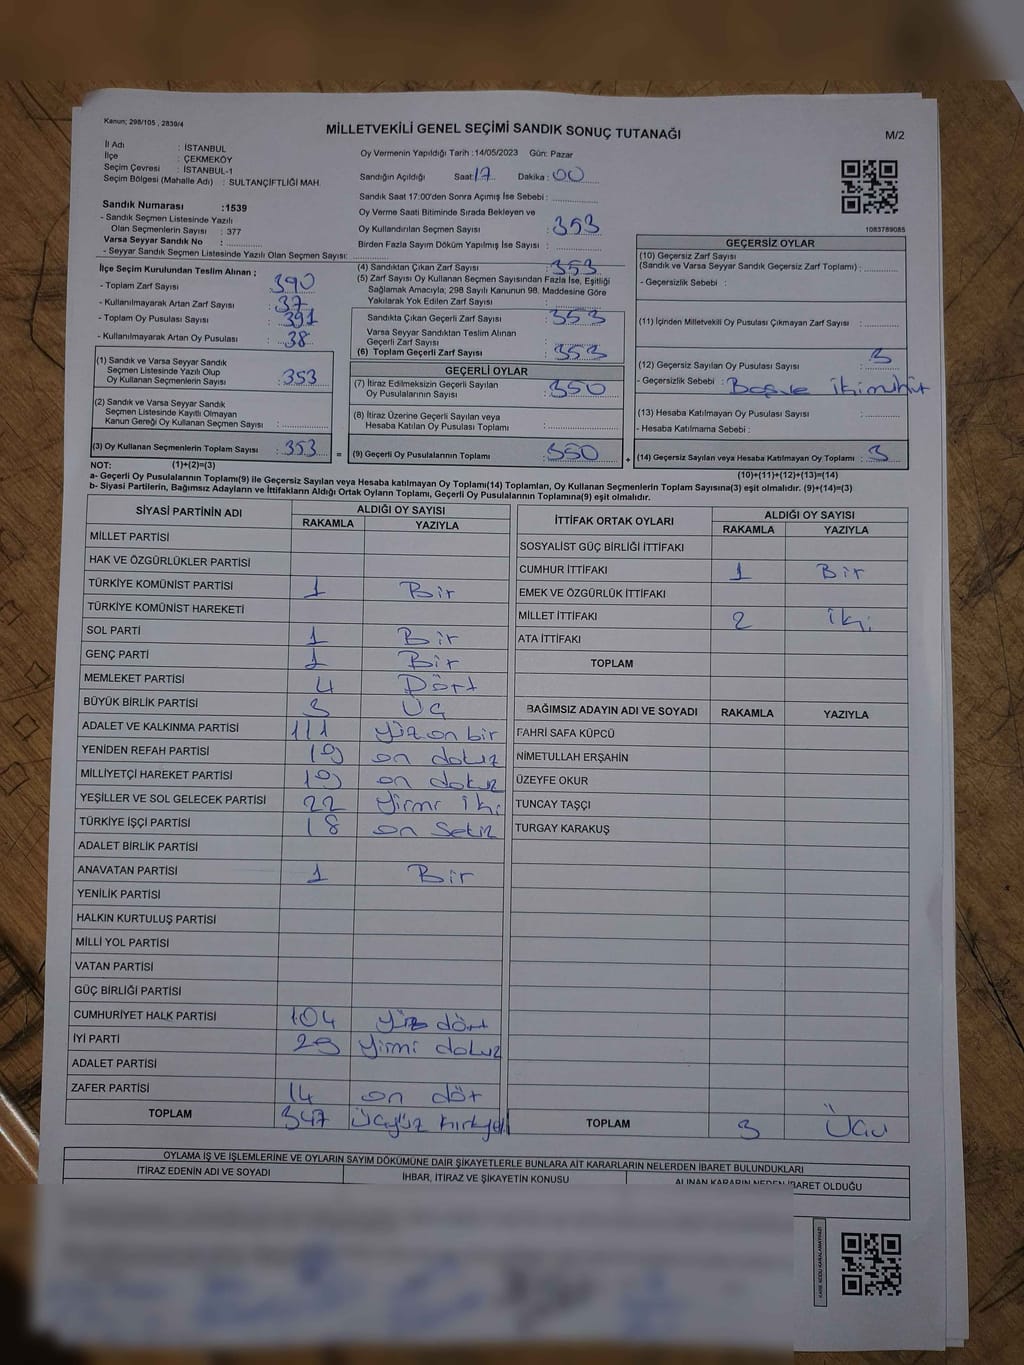 Kanun; 298/105 , 2839/4
MİLLETVEKİLİ GENEL SEÇİMİ SANDIK SONUÇ TUTANAĞI
M/2
İl Adı : İSTANBUL
İlçe : ÇEKMEKÖY
Seçim Çevresi : İSTANBUL-1
Seçim Bölgesi (Mahalle Adı) : SULTANÇİFTLİĞİ MAH.
Sandık Numarası :1539
- Sandık Seçmen Listesinde Yazılı
Olan Seçmenlerin Sayısı : 377
Varsa Seyyar Sandık No :
- Seyyar Sandık Seçmen Listesinde Yazılı Olan Seçmen Sayısı:
Oy Vermenin Yapıldığı Tarih :14/05/2023 Gün: Pazar
Sandığın Açıldığı Saat:17 Dakika :00
Sandık Saat 17:00'den Sonra Açımış İse Sebebi :
Oy Verme Saati Bitiminde Sırada Bekleyen ve
Oy Kullandırılan Seçmen Sayısı : 353
Birden Fazla Sayım Döküm Yapılmış İse Sayısı :
1083789085
İlçe Seçim Kurulundan Teslim Alınan ;
- Toplam Zarf Sayısı : 390
- Kullanılmayarak Artan Zarf Sayısı : 37
- Toplam Oy Pusulası Sayısı : 391
- Kullanılmayarak Artan Oy Pusulası : 38
(1) Sandık ve Varsa Seyyar Sandık
Seçmen Listesinde Yazılı Olup
Oy Kullanan Seçmenlerin Sayısı : 353
(2) Sandık ve Varsa Seyyar Sandık
Seçmen Listesinde Kayıtlı Olmayan
Kanun Gereği Oy Kullanan Seçmen Sayısı :
(3) Oy Kullanan Seçmenlerin Toplam Sayısı : 353
(4) Sandıktan Çıkan Zarf Sayısı : 353
(5) Zarf Sayısı Oy Kullanan Seçmen Sayısından Fazla İse, Eşitliği
Sağlamak Amacıyla; 298 Sayılı Kanunun 98. Maddesine Göre
Yakılarak Yok Edilen Zarf Sayısı :
Sandıkta Çıkan Geçerli Zarf Sayısı : 353
Varsa Seyyar Sandıktan Teslim Alınan
Geçerli Zarf Sayısı :
(6) Toplam Geçerli Zarf Sayısı : 353
GEÇERLİ OYLAR
(7) İtiraz Edilmeksizin Geçerli Sayılan
Oy Pusulalarının Sayısı : 350
(8) İtiraz Üzerine Geçerli Sayılan veya
Hesaba Katılan Oy Pusulası Toplamı :
= (9) Geçerli Oy Pusulalarının Toplamı : 350
GEÇERSİZ OYLAR
(10) Geçersiz Zarf Sayısı
(Sandık ve Varsa Seyyar Sandık Geçersiz Zarf Toplamı) :
- Geçersizlik Sebebi :
(11) İçinden Milletvekili Oy Pusulası Çıkmayan Zarf Sayısı :
(12) Geçersiz Sayılan Oy Pusulası Sayısı : 3
- Geçersizlik Sebebi :
(13) Hesaba Katılmayan Oy Pusulası Sayısı :
- Hesaba Katılmama Sebebi :
+ (14) Geçersiz Sayılan veya Hesaba Katılmayan Oy Toplamı : 3
NOT: (1)+(2)=(3)
(10)+(11)+(12)+(13)=(14)
a- Geçerli Oy Pusulalarının Toplamı(9) ile Geçersiz Sayılan veya Hesaba katılmayan Oy Toplamı(14) Toplamları, Oy Kullanan Seçmenlerin Toplam Sayısına(3) eşit olmalıdır. (9)+(14)=(3)
b- Siyasi Partilerin, Bağımsız Adayların ve İttifakların Aldığı Ortak Oyların Toplamı, Geçerli Oy Pusulalarının Toplamına(9) eşit olmalıdır.
SİYASİ PARTİNİN ADI ALDIĞI OY SAYISI
RAKAMLA YAZIYLA
MİLLET PARTİSİ
HAK VE ÖZGÜRLÜKLER PARTİSİ
TÜRKİYE KOMÜNİST PARTİSİ 1 Bir
TÜRKİYE KOMÜNİST HAREKETİ
SOL PARTİ 1 Bir
GENÇ PARTİ 1 Bir
MEMLEKET PARTİSİ 4 Dört
BÜYÜK BİRLİK PARTİSİ 3 Üç
ADALET VE KALKINMA PARTİSİ 111 yüz on bir
YENİDEN REFAH PARTİSİ 19 on dokuz
MİLLİYETÇİ HAREKET PARTİSİ 19 on dokuz
YEŞİLLER VE SOL GELECEK PARTİSİ 22 yirmi iki
TÜRKİYE İŞÇİ PARTİSİ 18 on sekiz
ADALET BİRLİK PARTİSİ
ANAVATAN PARTİSİ 1 Bir
YENİLİK PARTİSİ
HALKIN KURTULUŞ PARTİSİ
MİLLİ YOL PARTİSİ
VATAN PARTİSİ
GÜÇ BİRLİĞİ PARTİSİ
CUMHURİYET HALK PARTİSİ 104 yüz dört
İYİ PARTİ 29 yirmi dokuz
ADALET PARTİSİ
ZAFER PARTİSİ 14 on döt
TOPLAM 347
İTTİFAK ORTAK OYLARI ALDIĞI OY SAYISI
RAKAMLA YAZIYLA
SOSYALİST GÜÇ BİRLİĞİ İTTİFAKI
CUMHUR İTTİFAKI 1 Bir
EMEK VE ÖZGÜRLÜK İTTİFAKI
MİLLET İTTİFAKI 2 iki
ATA İTTİFAKI
TOPLAM
BAĞIMSIZ ADAYIN ADI VE SOYADI RAKAMLA YAZIYLA
FAHRİ SAFA KÜPCÜ
NİMETULLAH ERŞAHİN
ÜZEYFE OKUR
TUNCAY TAŞÇI
TURGAY KARAKUŞ
TOPLAM 3
OYLAMA İŞ VE İŞLEMLERİNE VE OYLARIN SAYIM DÖKÜMÜNE DAİR ŞİKAYETLERLE BUNLARA AİT KARARLARIN NELERDEN İBARET BULUNDUKLARI
İTİRAZ EDENİN ADI VE SOYADI İHBAR, İTİRAZ VE ŞİKAYETİN KONUSU ALINAN KARARIN NEDEN İBARET OLDUĞU